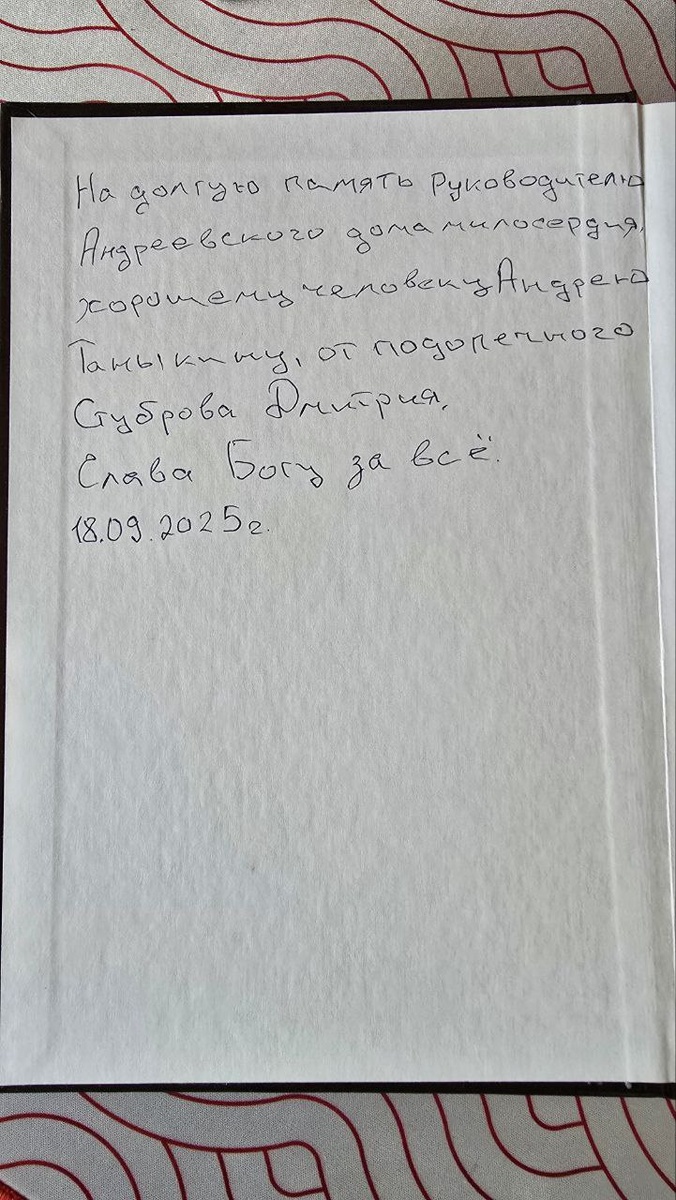 На долгую память руководителю
Андреевского дома милосердия,
хорошему человеку Андрею
Таныкину, от подопечного
Стуброва Дмитрия.
Слава Богу за всё.
18.09.2025г.